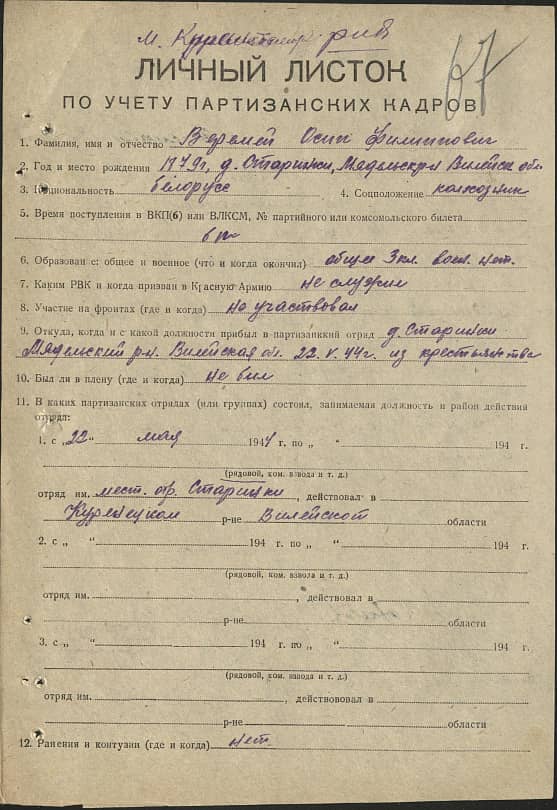 67
ЛИЧНЫЙ ЛИСТОК
ПО УЧЕТУ ПАРТИЗАНСКИХ КАДРОВ
1. Фамилия, имя и отчество Осип Филиппович
2. Год и место рождения д. Старинки, Мядельский Вилейск. обл.
3. Национальность белорусс 4. Соцположение колхозник
5. Время поступления в ВКП(б) или ВЛКСМ, № партийного или комсомольского билета
б/п
6. Образован е: общее и военное (что и когда окончил) общее 3 кл. воен. нет.
7. Каким РВК и когда призван в Красную Армию не служил
8. Участие на фронтах (где и когда) не участвовал
9. Откуда, когда и с какой должности прибыл в партизанкий отряд д. Старинки
Мядельский рн. Вилейская обл. 22.V.44г. из крестьянства
10. Был ли в плену (где и когда) не был
11. В каких партизанских отрядах (или группах) состоял, занимаемая должность и район действия
отряда:
1. с „22“ мая 1944 г. по „ “ 194 г.
(рядовой, ком. взвода и т. д.)
отряд им. мест. отр. Старинки, действовал в
Куренецком р-не Вилейской области
2. с „ “ 194 г. по „ “ 194 г.
(рядовой, ком. взвола и т. д.)
отряд им. , действовал в
р-не области
3. с „ “ 194 г. по „ “ 194 г.
(рядовой, ком. взвода и т. д.)
отряд им. , действововал в
р-не области
12. Ранения и контузии (где и когда) нет